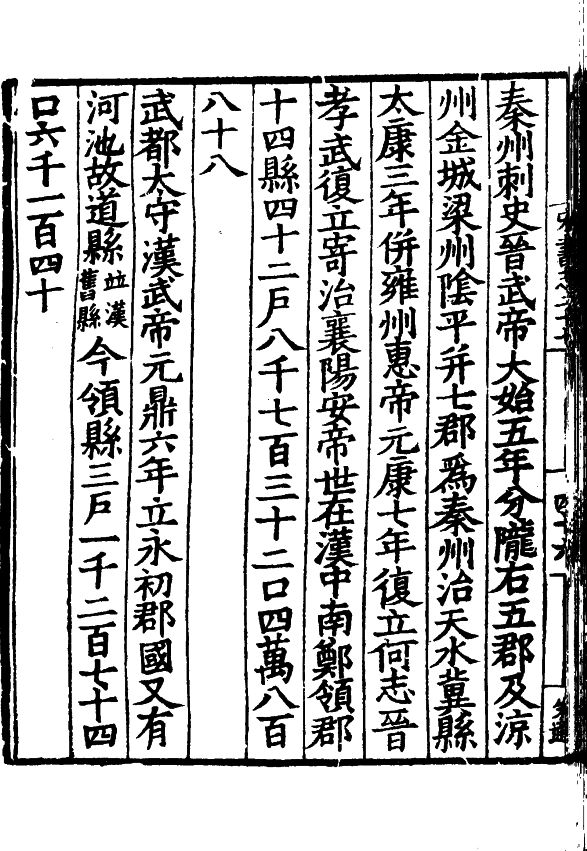 秦州刺史晉武帝大始五年分隴右五郡及涼
州金城梁州陰平并七郡爲秦州治天水冀縣
太康三年併雍州惠帝元康七年復立何志晉
孝武復立寄治襄陽安帝世在漢中南鄭領郡
十四縣四十二戶八千七百三十二口四萬八百
八十八
武都太守漢武帝元鼎六年立永初郡國又有
河池故道縣並漢舊縣今領縣三戶一千二百七十四
口六千一百四十